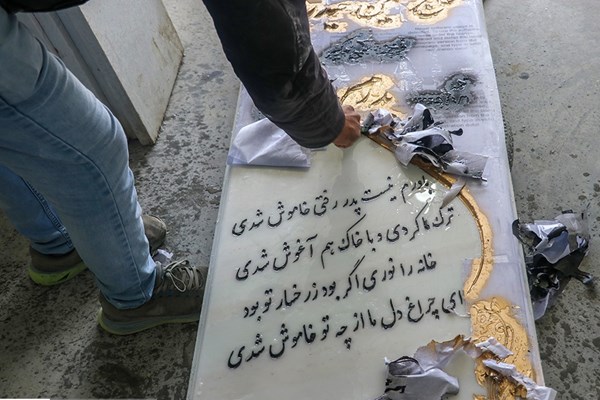 باورم نیست پدر رفتی خاموش شدی
ترک ما کردی و با خاک هم آغوش شدی
خانه را نوری اگر بود ز رخسار تو بود
ای چراغ دل ما از چه تو خاموش شدی